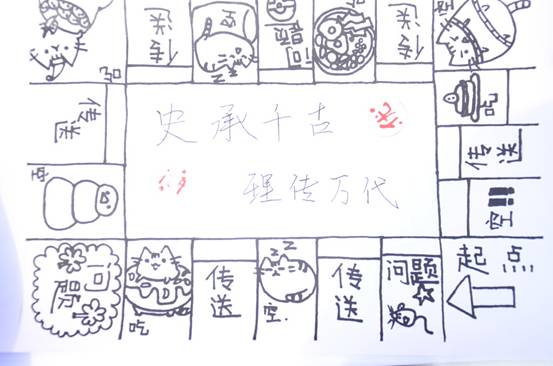 吃
传送
空
问题
传送
空
吃
传送
史承千古
理传万代
吃
传送
传送
空
空
起点
问题
吃
传送
空.
传送
问题